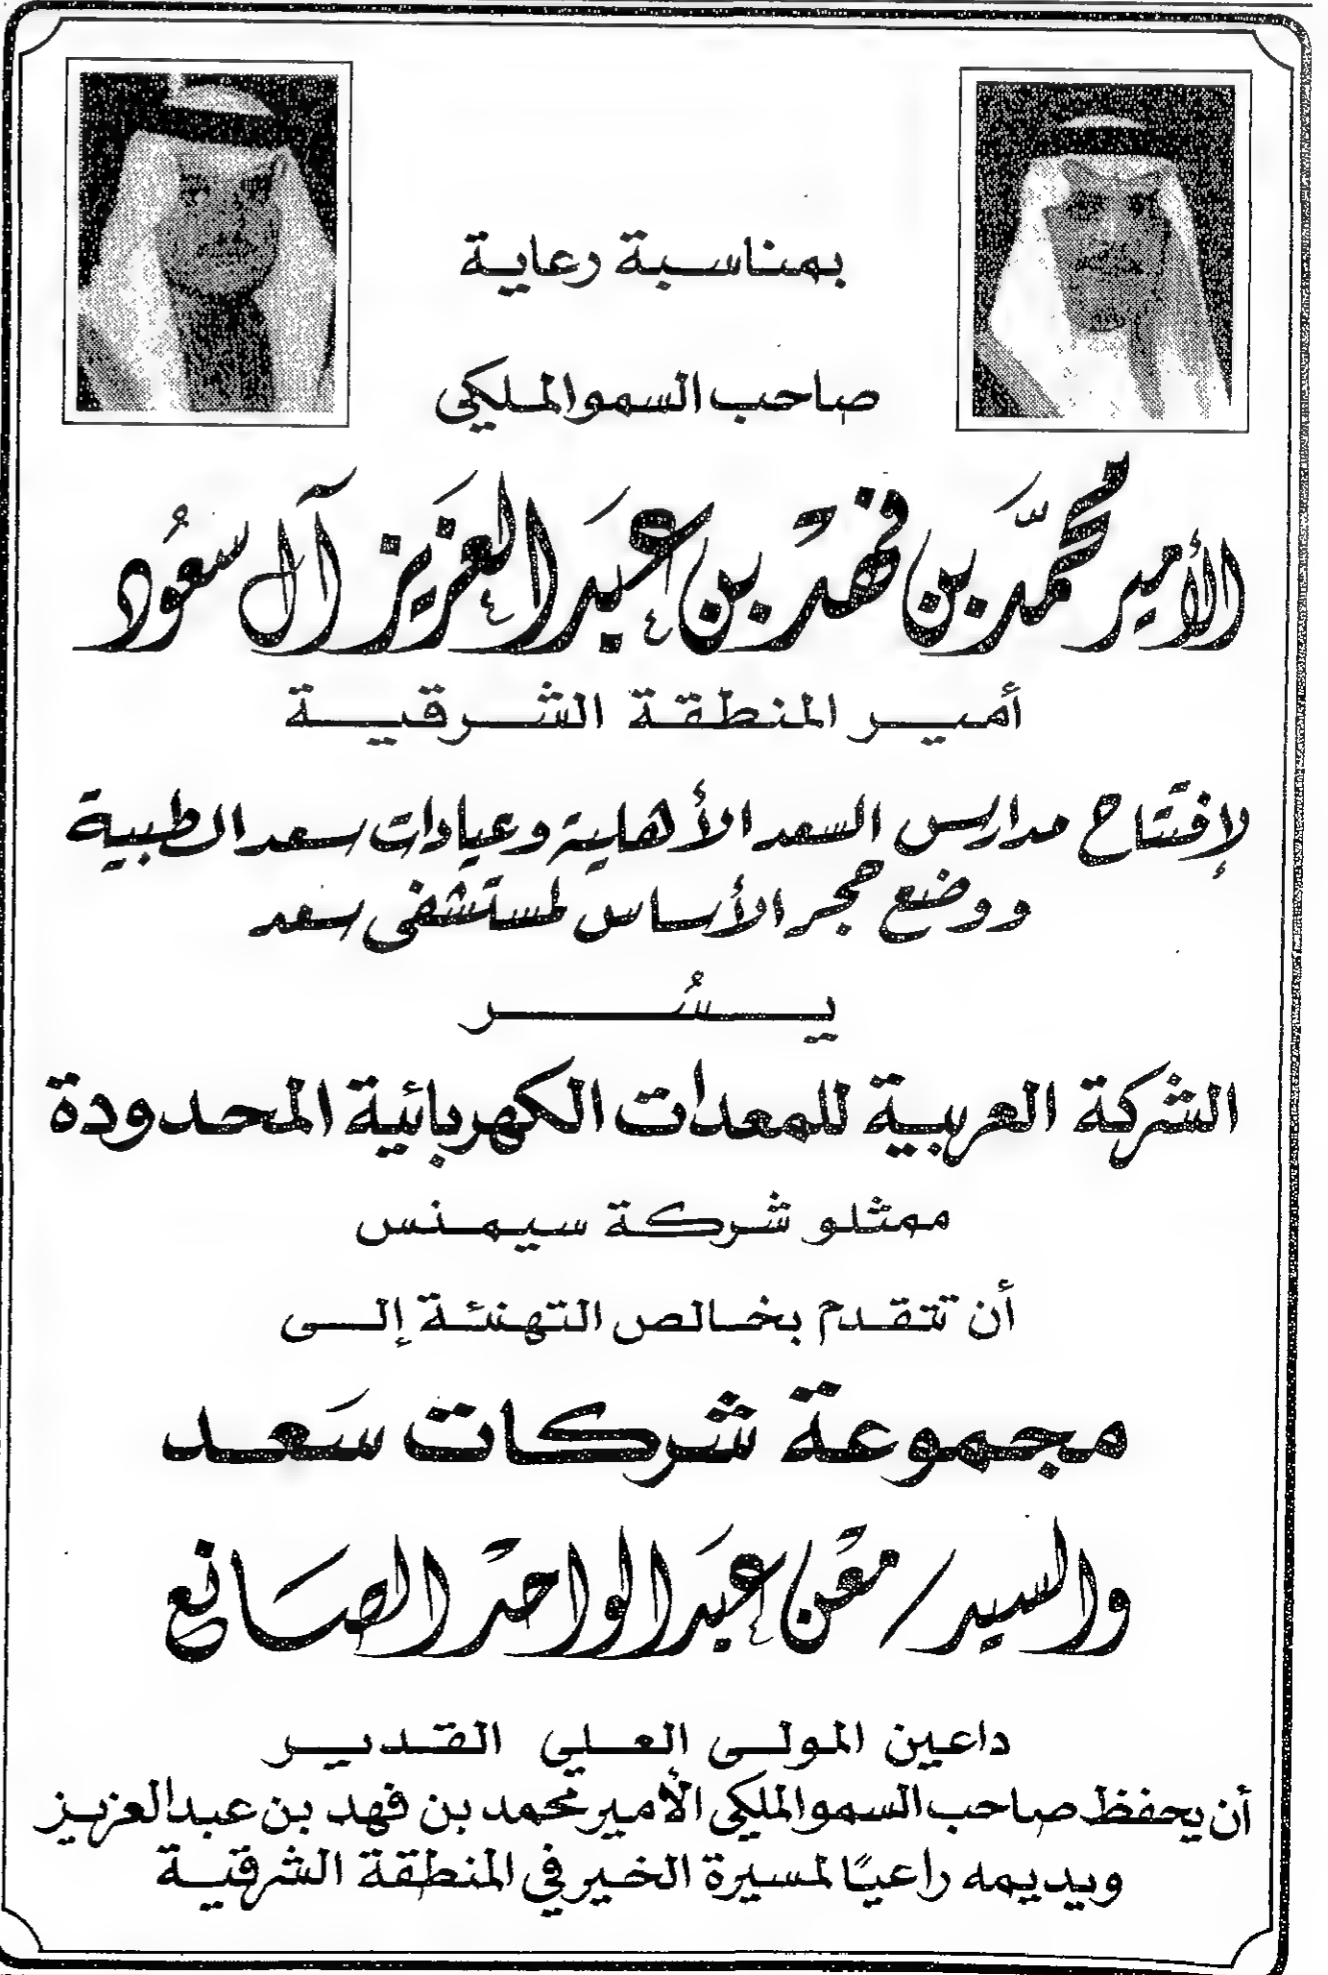 بمناسبة رعاية
صاحب السمو الملكي
الأمير محمد بن فهد بن عبد العزيز آل سعود
أمير المنطقة الشرقية
لإفتتاح مدارس السعد الأهلية وعيادات سعد الطبية
ووضع حجر الأساس لمستشفى سعد
يسُر
الشركة العربية للمعدات الكهربائية المحدودة
ممثلو شركة سيمنس
أن تتقدم بخالص التهنئة إلى
مجموعة شركات سَعد
والسيد / معن عبد الواحد الصانع
داعين المولى العلي القدير
أن يحفظ صاحب السمو الملكي الأمير محمد بن فهد بن عبد العزيز
ويديمه راعيًا لمسيرة الخير في المنطقة الشرقية